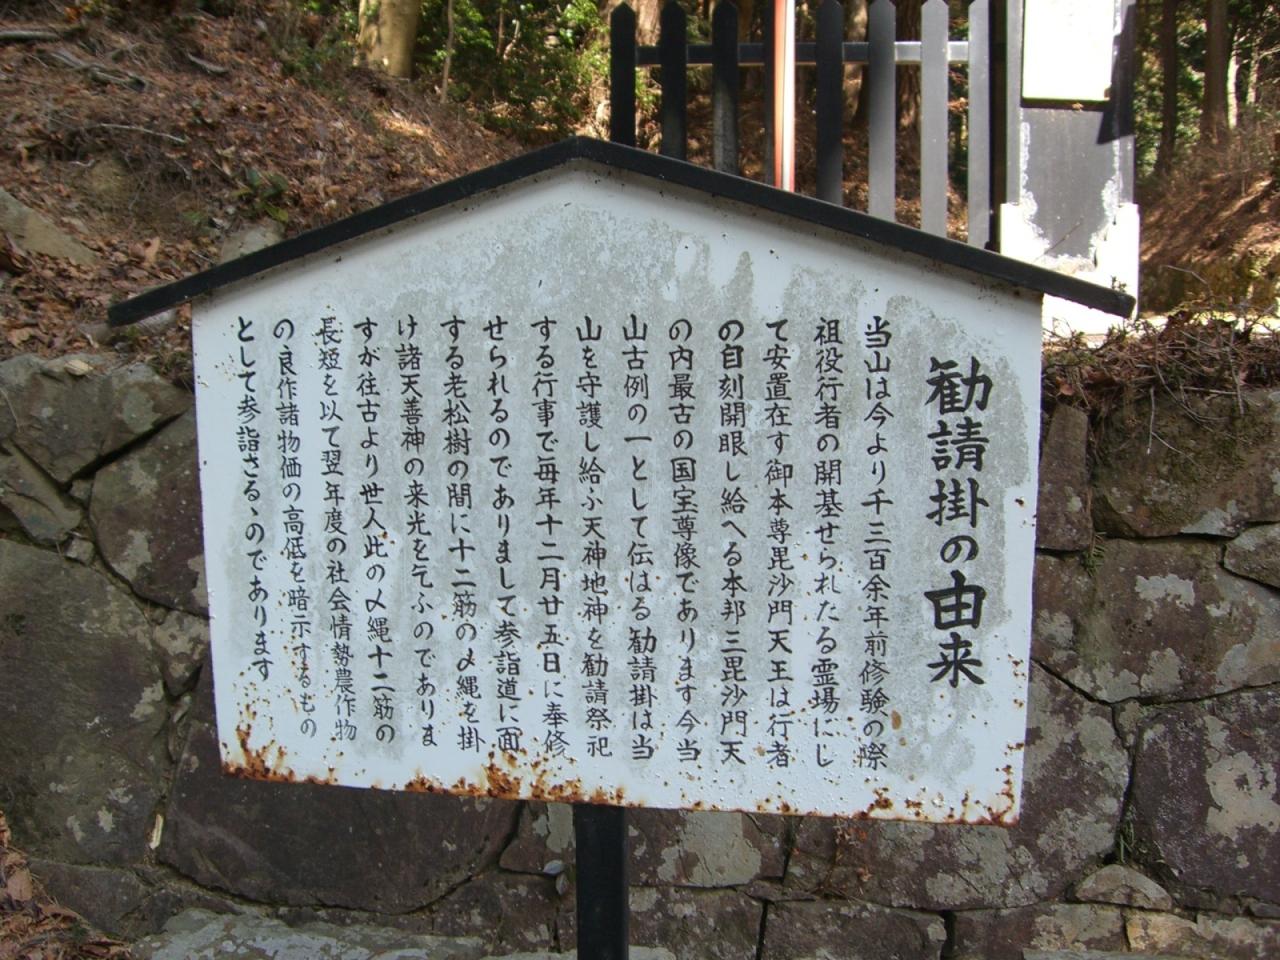 勧請掛の由来
当山は今より千三百余年前修験の際
祖役行者の開基せられたる霊場にし
て安置在す御本尊毘沙門天王は行者
の自刻開眼し給へる本邦三毘沙門天
の内最古の国宝尊像であります今当
山古例の一として伝はる勧請掛は当
山を守護し給ふ天神地神を勧請祭祀
する行事で毎年十二月廿五日に奉修
せられるのでありまして参詣道に面
する老松樹の間に十二筋の〆縄を掛
け諸天善神の来光を乞ふのでありま
すが往古より世人此の〆縄十二筋の
長短を以て翌年度の社会情勢農作物
の良作諸物価の高低を暗示するもの
として参詣さるゝのであります